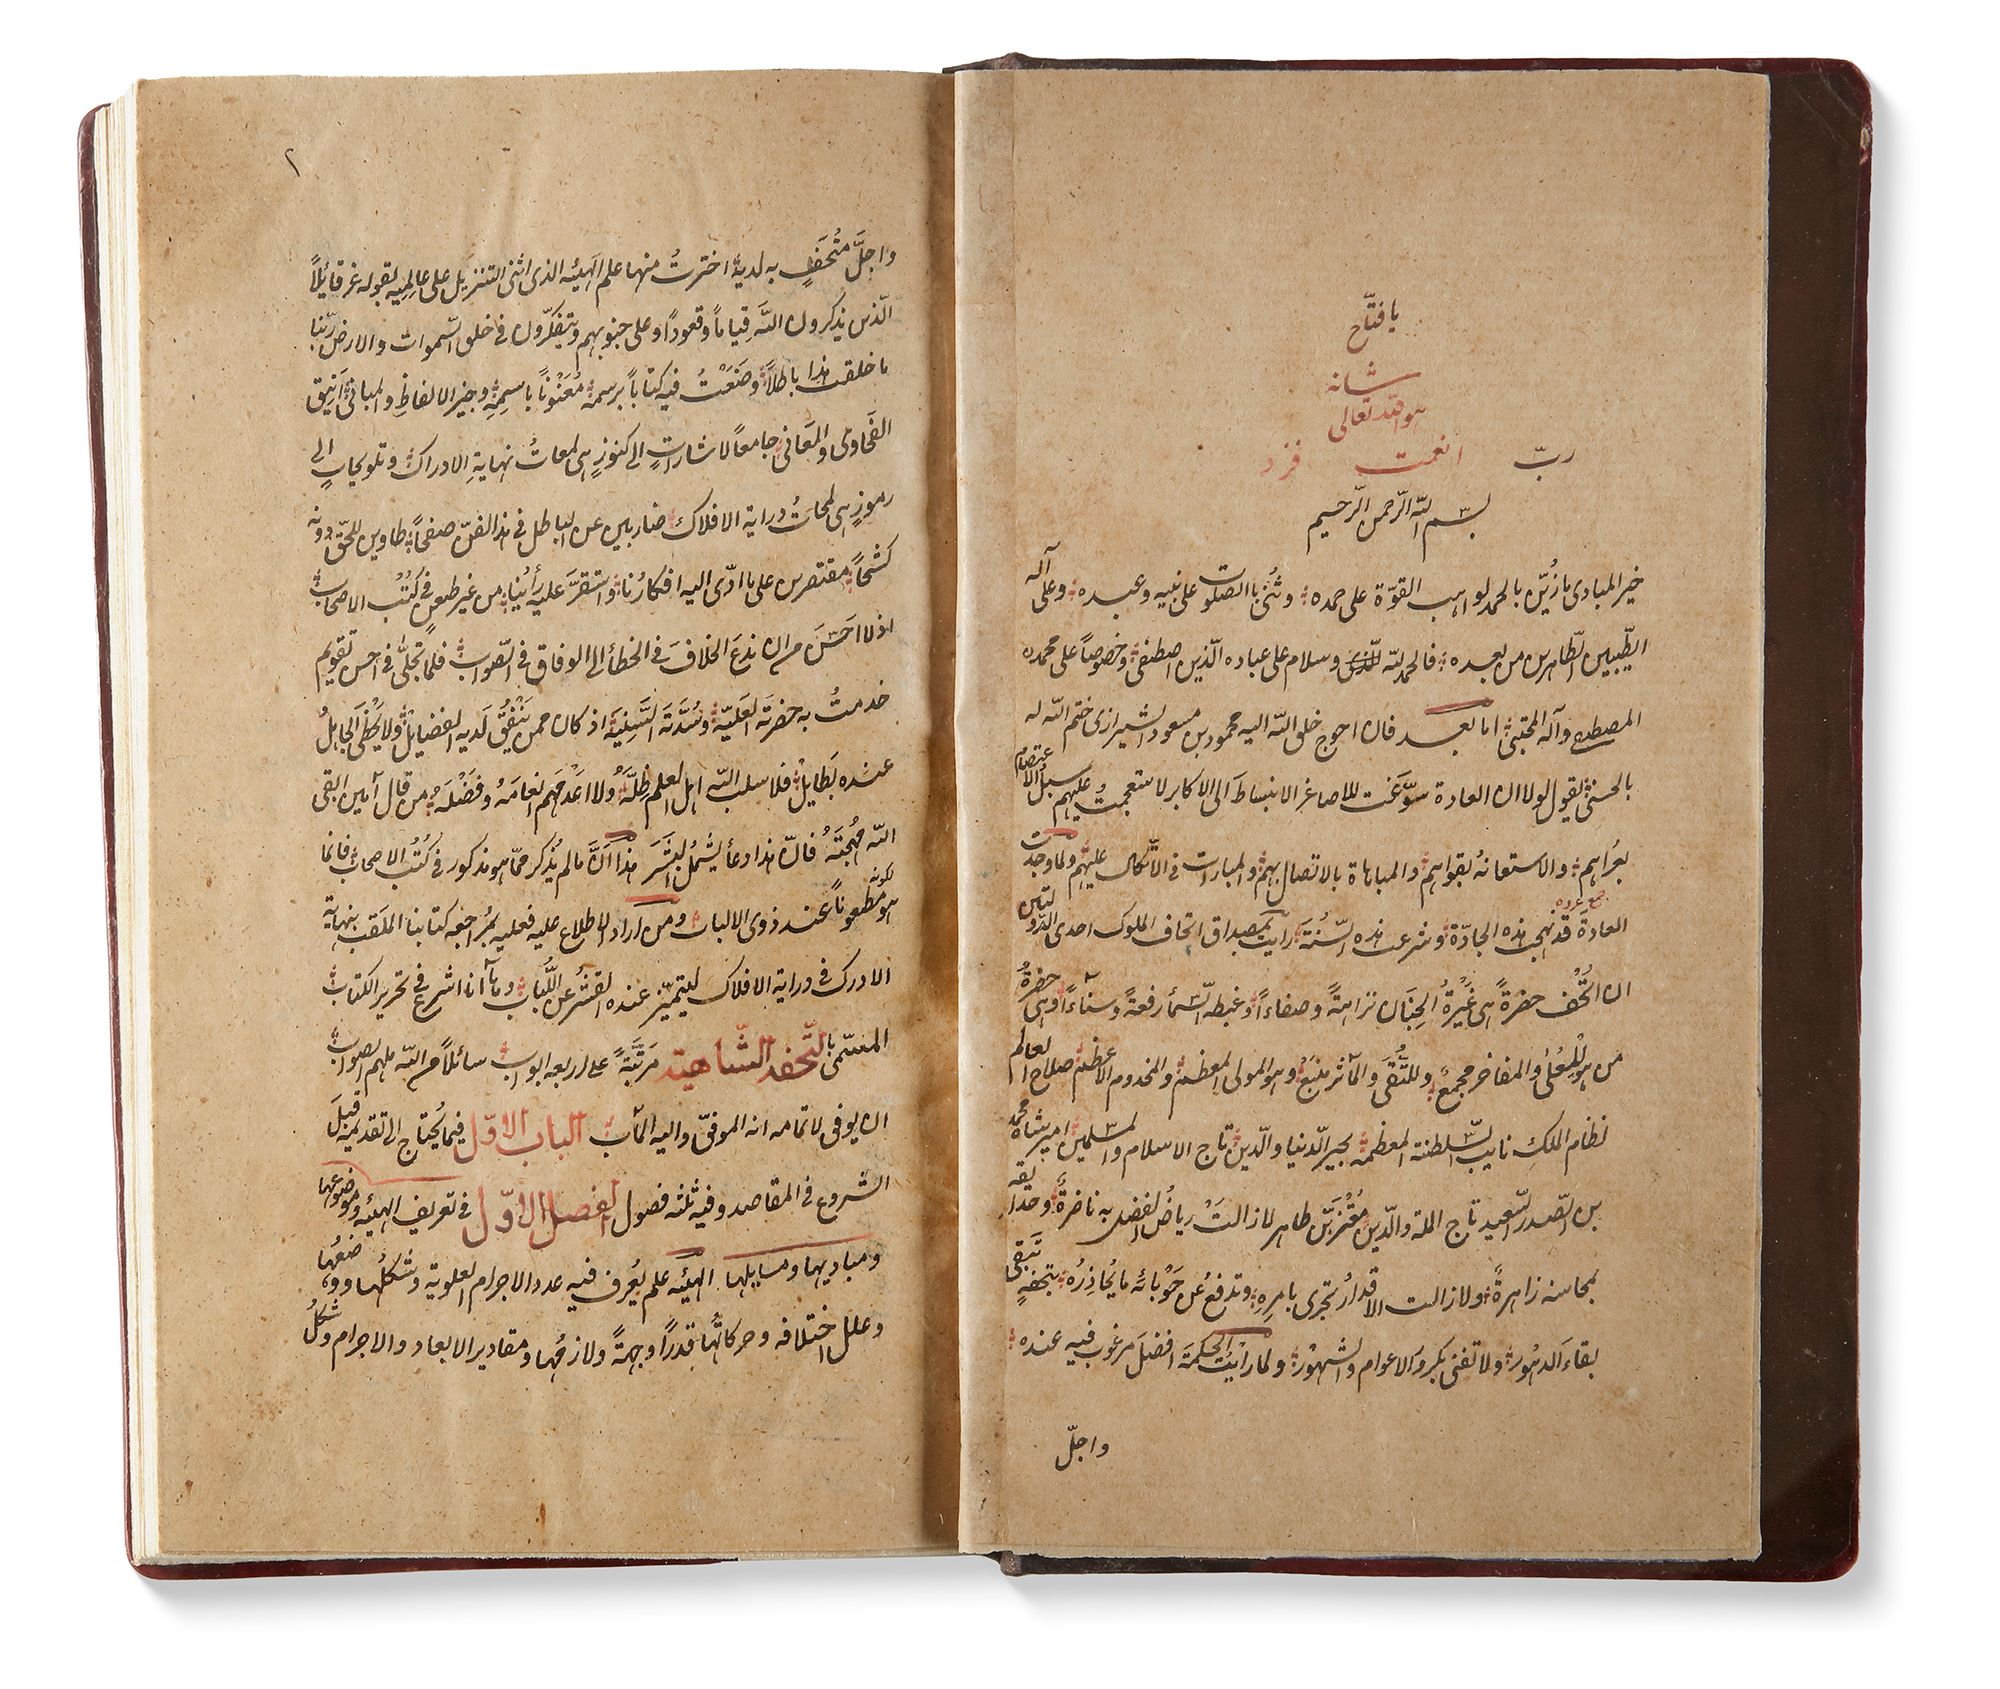 يا فتّاح
هو الله تعالى شانه
ربّ انعمت فزد
بسم الله الرّحمن الرّحيم
خير المبادى ما زُيّن بالحمد لواهب القوّة على حمده وثُنّى بالصّلوت على نبيه وعبده وعلى آله
الطّيبين الطّاهرين من بعده فالحمد لله وسلام على عباده الّذين اصطفى وخصوصاً على محمده
المصطفى وآله المجتبى اما بعد فان احوج خلق الله اليه محمود بن مسعود الشيرازى ختم الله له
بالحسنى يقول لولا ان العادة سوّغت للاصاغر الانبساط الى الاكابر لاستعجمتُ عليهم سبل الاعتصام
بعُراهم والاستعانهُ بقواهم والمباهاة بالاتصال بهم والمبارات فى الاتّكال عليهم ولما وجدت
العادة قد نهجت هذه الجادّة وشرعت هذه السّنة رايت بمصداق اتحاف الملوك احدى الدّولتين
ان اُتْحف حضرةً هى غُيرةُ الجِنَان نزاهةً وصفاءاً وغبطه السّمأ رفعةً وسنآءاً وهى حضرةُ
من هو للعُلىٰ والمفاخر مجمعٌ وللتُّقَى والمآثر منبَعٌ وهو المولى المعظم والمخدوم الاعظم صلاح العالم
نظام الملك نايب السّلطنة المعظمه مجير الدّنيا والدّين تاج الاسلام والمسلمين امير شاه محمد
بن الصّدر السّعيد تاج الملة والّدين مُعْتزبّن طاهر لا زالتْ رياضُ الفضل به ناضرةً وحدايقه
بمحاسنه زاهرةً ولا زالت الاقدارُ تجرى بامرِهِ وتدفعُ عن حَوْبائه ما يُحاذِرُه بتحفهٍ تَبقى
بقاءَ الدهُور ولا تفنى بكرو الاعوام والشهُوْر ولما رايْتُ الحكمة افضلَ مرغوب فيه عنده
واجلّ
٢
واجلَّ مُتحَفٍ به لديه اخترتُ منها علم الهيئه الذى اثنى التنزيل على عالِميه بقوله عز قائلاً
الّذين يذكرون اللهَ قياماً وقعوداً وعلى جنوبهم ويتفكّرون فى خلق السّموات والارض ربّنا
ما خلقت هذا باطلاً وصَنَعْتُ فيه كتاباً برسمه مُعَنْوناً باسمِهِ وجيز الالفاظ والمبانى انيق
الفحاوى والمعانى جامعاً لاشاراتٍ الى كنوزٍ هى لمعاتُ نهايةِ الادراك وتلويحاتٍ الى
رموزٍ هى لمحاتُ دراية الافلاك ضاربين عن الباطل فى هذا الفنّ صفحاً طاوين للحقّ دونه
كشحاً مقتصرين على ما ادّى اليه افكارُنا واستقرَّ عليه رأينا من غير طعن فى كُتُب الاصحاب
اذ لا احَسَنَ من ان ندعَ الخلافَ فى الخطأ الى الوفاق فى الصّواب فلما تجلّى فى احسن تقويم
خدمتُ به حضرته العليّة وسُدَّتَه السَّنِيّة اذ كان ممن يَتْفُقُ لَديه الفضايل ولا يَحْظَى الجاهلُ
عنده بطايل فلا سلب الله اهل العلم ظِلَّهُ ولا اعْدمَهم انعامَهُ وفَضْلَهُ من قال آمين ابقى
اللهُ مُهْجتَهُ فانّ هذا دعأ يشمل البشرَ هذا انَّ ما لم يُذكر ممّا هو مذكور فى كُتُب الاصحاب فانما
هو لكونه مطعوناً عند ذوى الالباب ومن اراد الاطلاع عليه فعليه بمُراجعه كتابنا الملقب بنهاية
الادرك فى دراية الافلاك ليتميّز عنده القشرُ عن اللُّباب وها انا اشرع فى تحرير الكتاب
المسمّى بالتّحفه الشّاهيّه مرتّبةً على اربعه ابواب سائلاً من الله ملهم الصواب
ان يوفق لاتمامه انه الموفق واليه المآب الباب الاوّل فيما يُحتاج الى تقديمه قبل
الشروع فى المقاصد وفيه ثلثه فصول الفصل الاوّل فى تعريف الهيئه وموضوعها
ومباديها ومسايلها الهيئه علم يُعرف فيه عدد الاجرام العلوية وشكلُها ووضعُها
وعلل اختلافه وحركاتُها قدراً وجهةً ولازمُها ومقادير الابعاد والاجرام وشكلُ